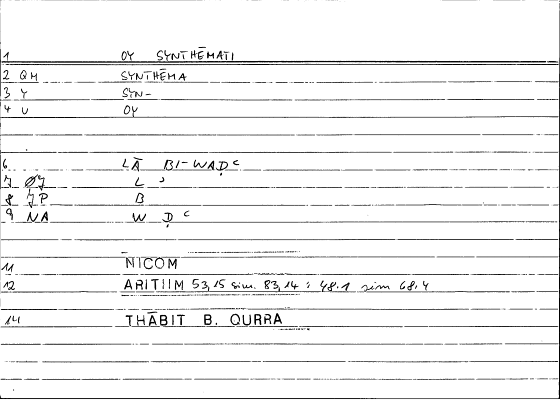 1 OY SYNTHĒMATI
2 QM SYNTHĒMA
3 Y SYN-
4 U OY
6 LĀ BI-WAḌʿ
7 ØJ L ʾ
8 JP B
9 NA W Ḍ ʿ
11 NICOM
12 ARITIIM 53,15 sim. 83,14 : 48.1 sim 68.4
14 THĀBIT B. QURRA